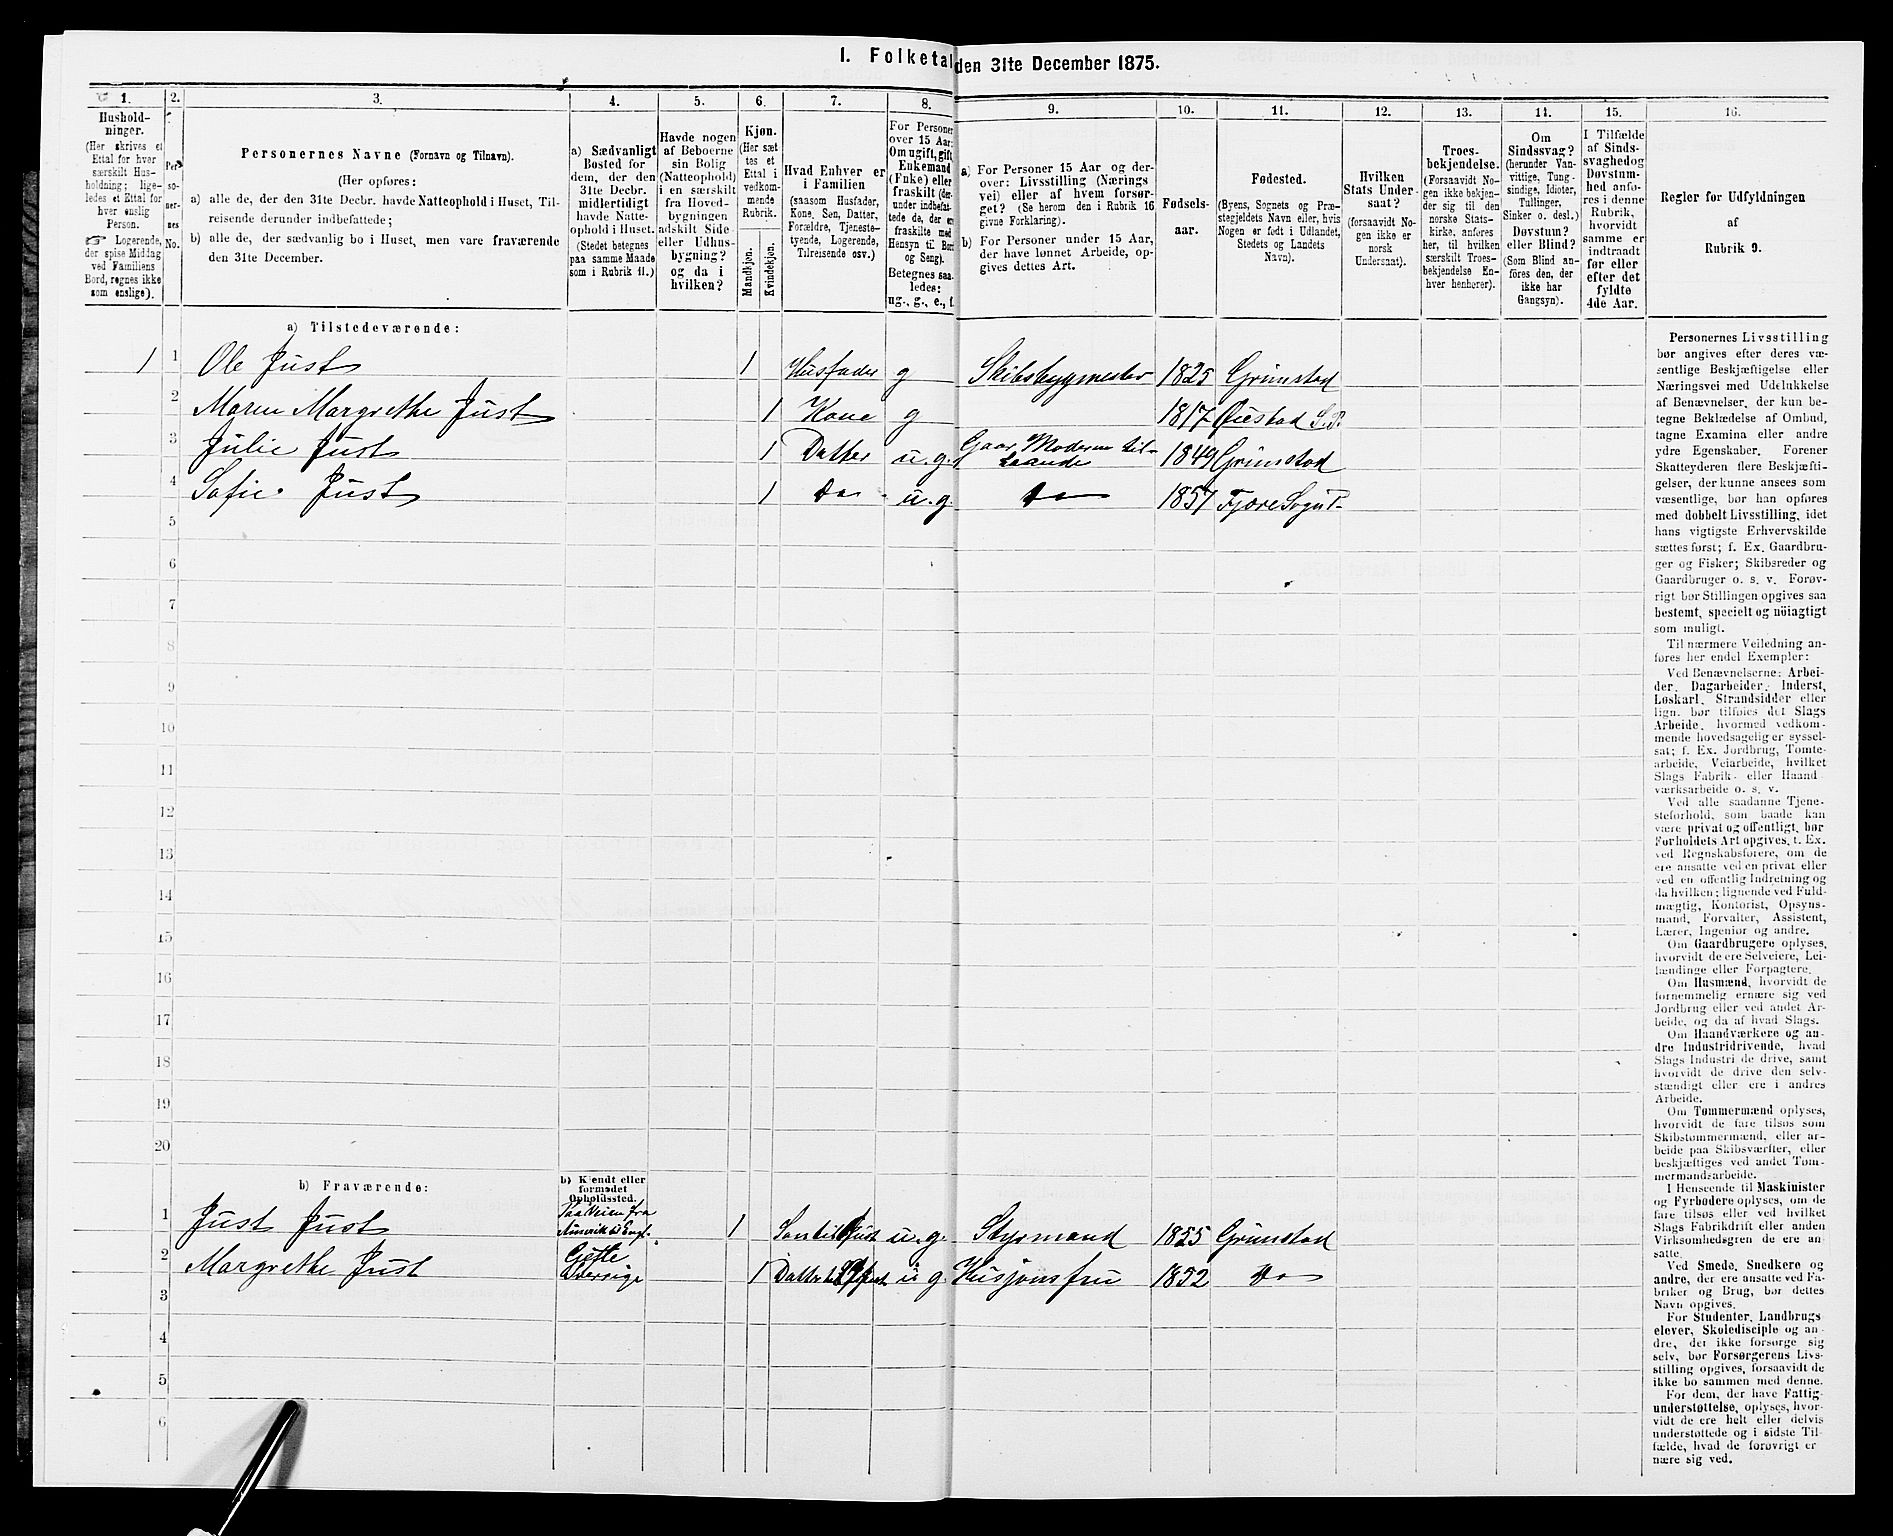 I. Folketal den 31te December 1875.
1. 2. 3. 4. 5. 6. 7. 8. 9. 10. 11. 12. 13. 14. 15. 16.
Hushold-
ninger.
(Her skrives et
Ettal for hver
særskilt Hus-
holdning; lige-
ledes et Ettal for
hver enslig
Person.
☞ Logerende,
der spise Middag
ved Familiens
Bord, regnes ikke
som enslige).
Per-
so-
ner-
nes
No.
Personernes Navne (Fornavn og Tilnavn).
(Her opføres:
a) alle de, der den 31te Decbr. havde Natteophold i Huset, Til-
reisende derunder indbefattede;
b) alle de, der sædvanlig bo i Huset, men vare fraværende
den 31te December.
a) Sædvanligt
Bosted for
dem, der den
31te Decbr.
midlertidigt
havde Natte-
ophold i Huset.
(Stedet betegnes
paa samme Maade
som i Rubrik 11.)
Havde nogen
af Beboerne
sin Bolig
(Natteophold)
i en særskilt
fra Hoved-
bygningen
adskilt Side-
eller Udhus-
bygning?
og da i
hvilken?
Kjøn.
(Her sæt
tes et
Ettal i
vedkom-
mende
Rubrik.
Mandkjøn.
Kvindekjøn.
Hvad Enhver er
i Familien
(saasom Husfader,
Kone, Søn, Datter,
Forældre, Tjeneste-
tyende, Logerende,
Tilreisende osv.)
For Personer
over 15 Aar:
Om ugift, gift,
Enkemand
(Enke) eller
fraskilt (der-
under indbefat-
tede de, der ere
fraskilte med
Hensyn til Bord
og Seng).
Betegnes saa-
ledes:
ug., g., e., f.
a) For Personer 15 Aar og der-
over: Livsstilling (Nærings
vei) eller af hvem forsør-
get? (Se herom den i Rubrik 16
givne Forklaring).
b) For Personer under 15 Aar,
der have lønnet Arbeide, op-
gives dettes Art.
Fødsels-
aar.
Fødested.
(Byens, Sognets og Præ-
stegjeldets Navn eller, hvis
Nogen er født i Udlandet,
Stedets og Landets
Navn).
Hvilken
Stats Under-
saat?
(forsaavidt No-
gen ikke er
norsk
Undersaat).
Troes-
bekjendelse.
(Forsaavidt No-
gen ikke bekjen-
der sig til den
norske Stats-
kirke, anføres
her, til hvilken
særskilt Troes-
bekjendelse En-
hver henhører).
Om
Sindssvag?
(herunder Van-
vittige, Tung-
sindige, Idioter,
Tullinger,
Sinker o. desl.)
Døvstum?
eller Blind?
(Som Blind an-
føres den, der
ikke har
Gangsyn).
I Tilfælde
af Sinds-
svaghed og
Døvstum-
hed anfø-
res i denne
Rubrik,
hvorvidt
samme er
indtraadt
før eller
efter det
fyldte
4de Aar.
Regler for Udfyldningen
af
Rubrik 9.
a) Tilstedeværende:
1 1 Ole Just 1 Husfader g Skibsbygmester 1825 Grimstad
2 Maren Margrethe Just 1 Kone g 1817 Øiestad S.P.
3 Julie Just 1 Datter u.g. Gaar Moderen til-
Haande 1849 Grimstad
4 Sofie Just 1 Do u.g. Do 1857 Fjære Sogn P.
5
6
7
8
9
10
11
12
13
14
15
16
17
18
19
20
b) Fraværende:
b) Kjendt eller
formodet
Opholdssted.
1 Just Just Paa Reisen fra
Amerik til Engl. 1 Søn til O Just u.g. Styrmand 1855 Grimstad
2 Margrethe Just Gefle
Sverige 1 Datter til O Just u g. Husjomfru 1852 Do
3
4
5
6
Personernes Livsstilling
bør angives efter deres væ-
sentlige Beskjæftigelse eller
Næringsvei med Udelukkelse
af Benævnelser, der kun be-
tegne Beklædelse af Ombud,
tagne Examina eller andre
ydre Egenskaber. Forener
Skatteyderen flere Beskjæfti-
gelser, der kunne ansees som
væsentlige, bør han opføres
med dobbelt Livsstilling, idet
hans vigtigste Erhvervskilde
sættes først; f. Ex. Gaardbru-
ger og Fisker; Skibsreder og
Gaardbruger o. s. v. Forøv-
rigt bør Stillingen opgives saa
bestemt, specielt og nöiagtigt
som muligt.
Til nærmere Veiledning an-
føres her endel Exempler:
Ved Benævnelserne: Arbei-
der, Dagarbeider, Inderst,
Løskarl, Strandsidder eller
lign. bør tilføies det Slags
Arbeide, hvormed vedkom-
mende hovedsagelig er syssel-
sat; f. Ex. Jordbrug, Tomte-
arbeide, Veiarbeide, hvilket
Slags Fabrik- eller Haand-
værksarbeide o. s. v.
Ved alle saadanne Tjene-
steforhold, som baade kan
være privat og offentligt, bør
Forholdets Art opgives, t. Ex.
ved Regnskabsførere, om de
ere ansatte ved en privat eller
ved en offentlig Indretning og
da hvilken; lignende ved Fuld-
mægtig, Kontorist, Opsyns-
mand, Forvalter, Assistent,
Lærer, Ingeniør og andre.
Om Gaardbrugere oplyses,
hvorvidt de ere Selveiere, Lei-
lændinge eller Forpagtere.
Om Husmænd, hvorvidt de
fornemmelig ernære sig ved
Jordbrug eller ved andet Ar-
beide, og da af hvad Slags.
Om Haandværkere og an-
dre Industridrivende, hvad
Slags Industri de drive, samt
hvorvidt de drive den selv-
stændigt eller ere i andres
Arbeide.
Om Tømmermænd oplyses,
hvorvidt de fare tilsøs som
Skibstømmermænd, eller ar-
beide paa Skibsværfter, eller
beskjæftiges ved andet Tøm-
mermandsarbeide.
I Henseende til Maskinister
og Fyrbødere oplyses, om de
fare tilsøs eller ved hvilket
Slags Fabrikdrift eller anden
Virksomhedsgren de ere an-
satte.
Ved Smede, Snedkere og
andre, der ere ansatte ved Fa-
briker og Brug, bør dettes
Navn opgives.
For Studenter, Landbrugs
elever, Skoledisciple og an-
dre, der ikke forsørge sig
selv, bør Forsørgerens Livs-
stilling opgives, forsaavidt de
ikke bo sammen med denne.
For dem, der have Fattig-
understøttelse, oplyses, hvor-
vidt de ere helt eller delvis
understøttede og i sidste Til-
fælde, hvad de forøvrigt er
nære sig ved.